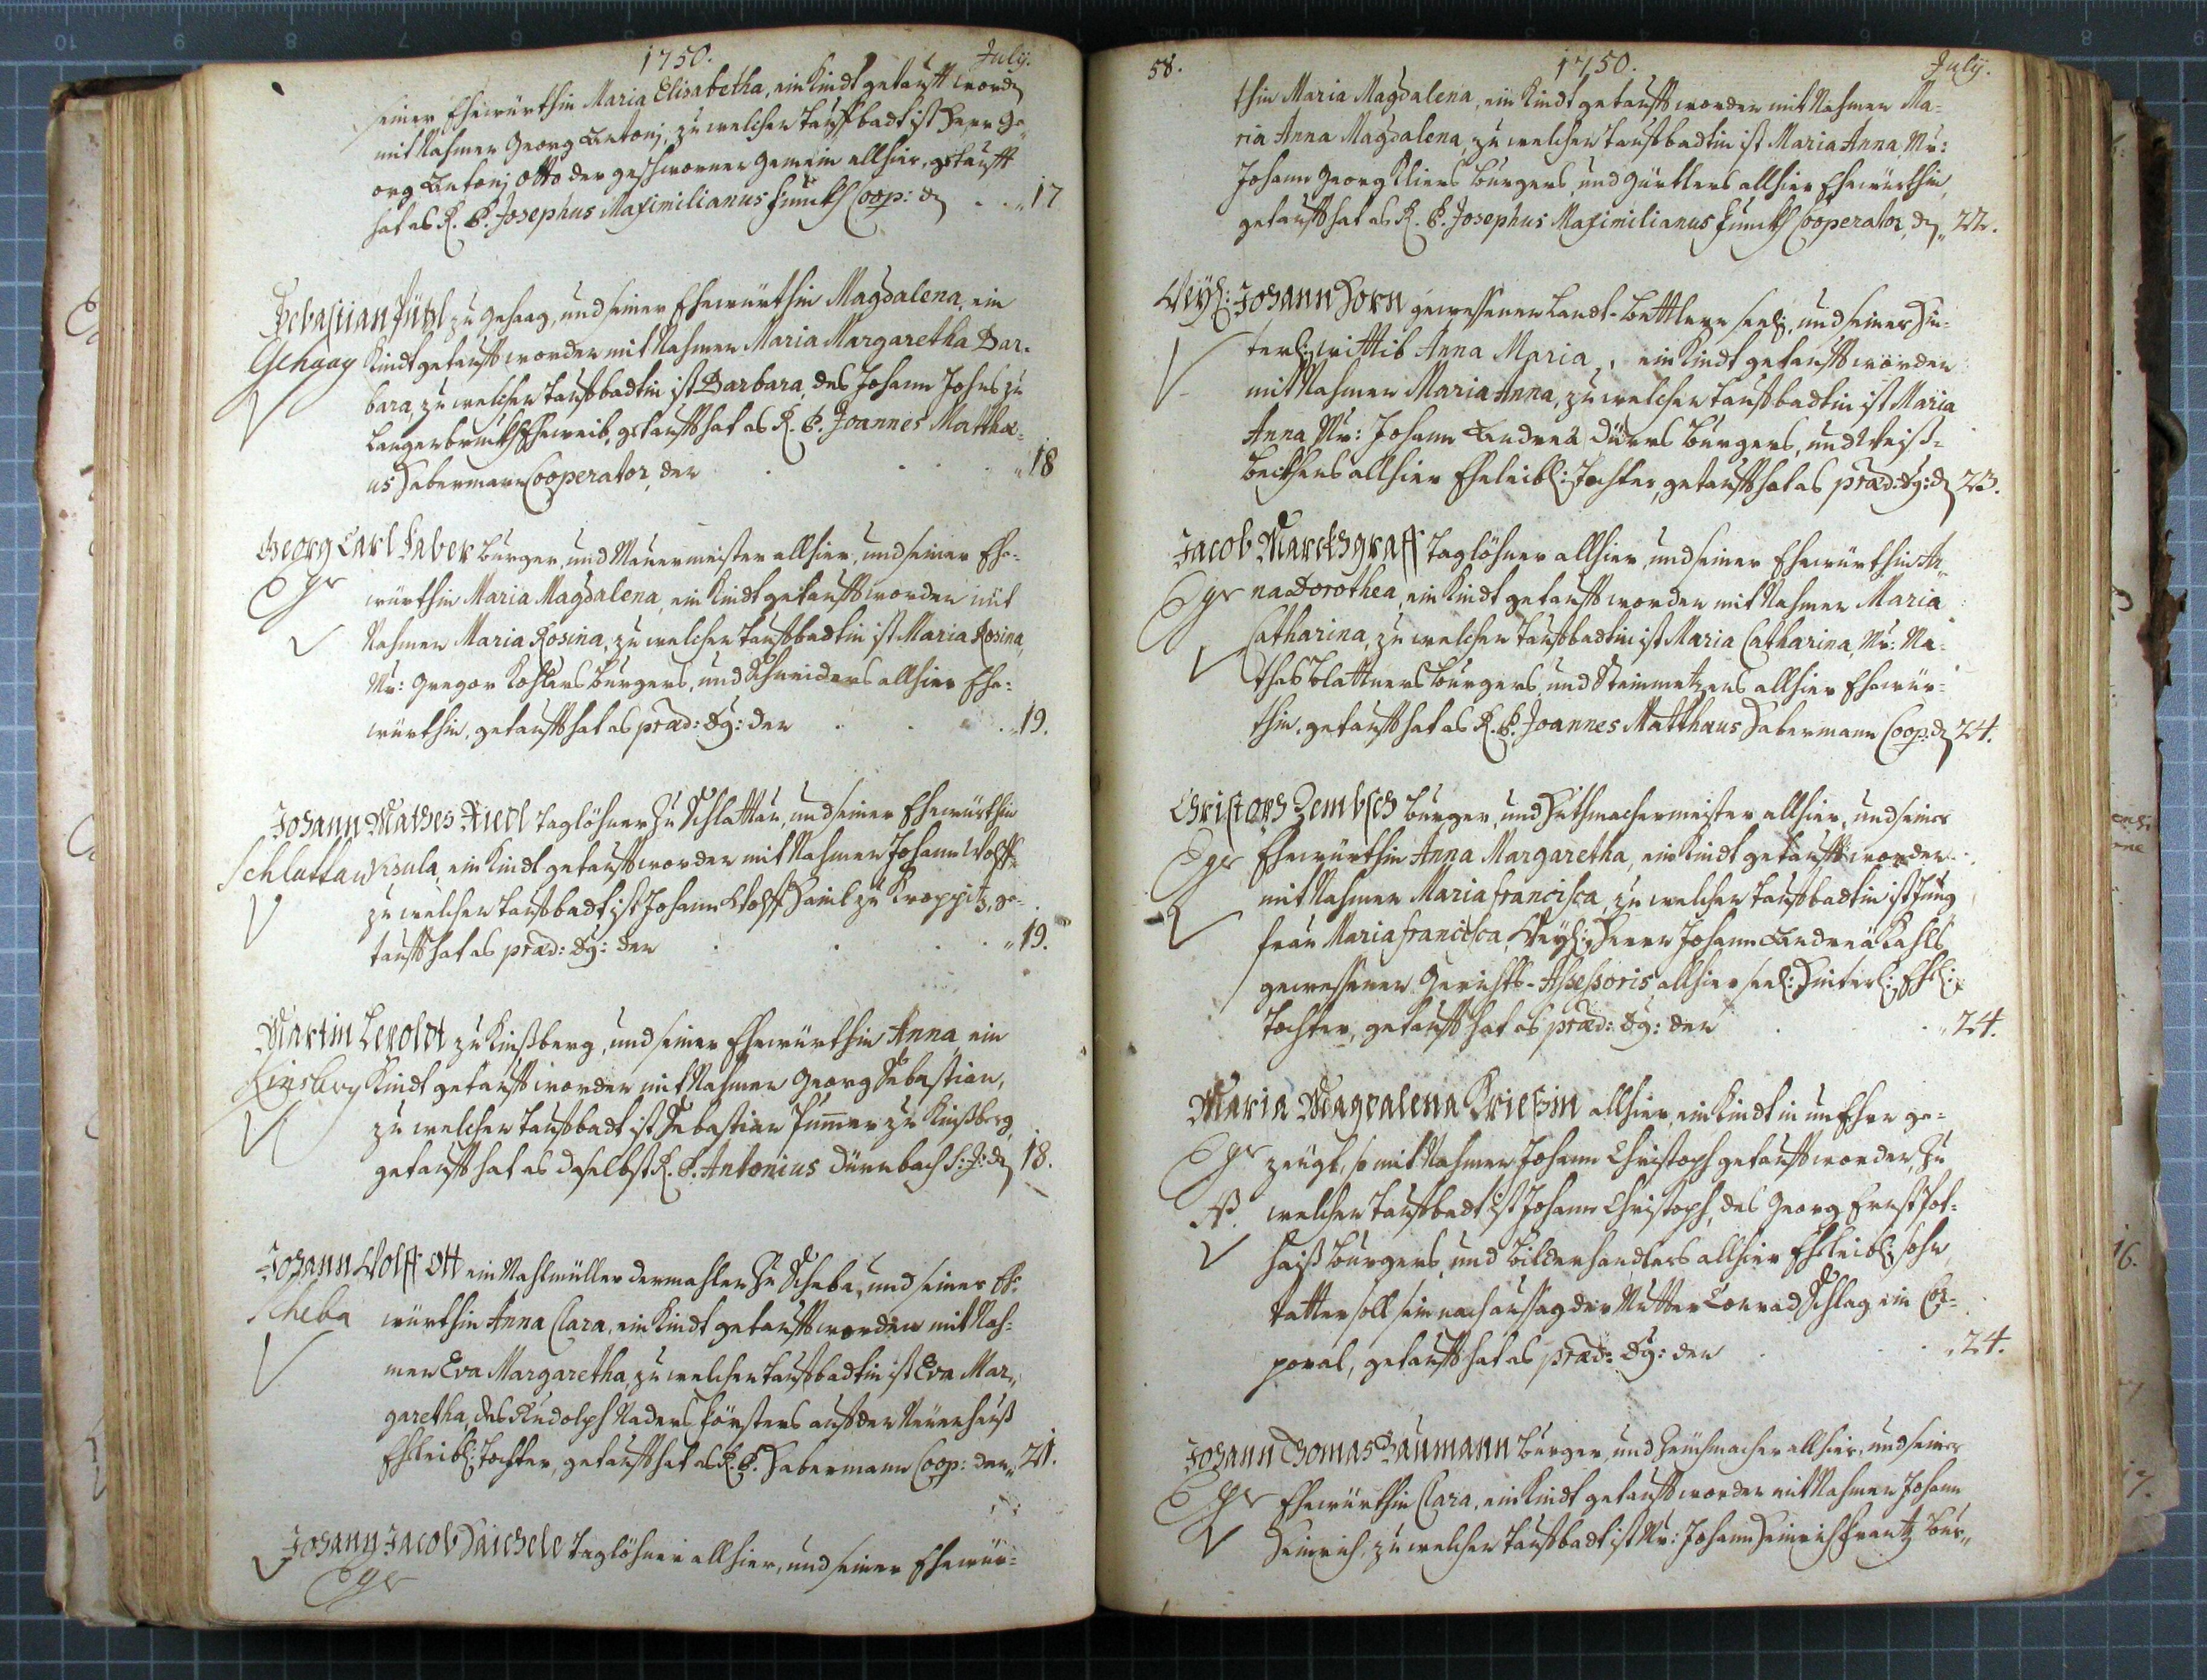 1750. July.
seiner Ehewürthin Maria Elisabetha, ein Kindt getaufft wordn
mit Nahmen Georg Antonj, zu welcher tauffbadt ist Herr Ge-
org Antonj Otto der geschworner Gemein allhier, getaufft
hat es R. P. Josephus Maximilianus Funckh Coop: dn „17
Sebastian Pützl zu Gehaag, und seiner Ehewürthin Magdalena, ein
Gehaag Kindt getaufft worden mit Nahmen Maria Margaretha Bar-
bara, zu welcher tauffbadtin ist Barbara, des Johann Johns zu
Langenbruckh Eheweib, getaufft hat es R. P. Joannes Matthæ-
us Habermann Cooperator, den „18
Georg Carl Faber burger, und Maurermeister allhier, und seiner Ehe-
Eger würthin Maria Magdalena, ein Kindt getaufft worden mit
Nahmen Maria Rosina, zu welcher tauffbadtin ist Maria Rosina,
Mr: Gregor Kohlers burgers, und Schneiders allhier Ehe-
würthin, getaufft hat es præd: Dg: den „19.
Johann Mathes Riedl taglöhner zu Schlattau, und seiner Ehewürthin
Schlattau Ursula, ein Kindt getaufft worden mit Nahmen Johann Wolff
zu welcher tauffbadt ist Johann Wolff Hainl zu Kroppitz, ge-
taufft hat es præd: Dg: den „19.
Martin Leroldt zu Kinßberg, und seiner Ehewürthin Anna, ein
Kinsberg Kindt getaufft worden mit Nahmen Georg Sebastian,
zu welcher tauffbadt ist Sebastian Pumer zu Kinßberg,
getaufft hat es daselbst R. P. Antonius Dürnbach S: J: dn 18.
Johann Wolff Ott ein Mahlmüller dermahlen zu Scheba, und seiner Eh-
Scheba würthin Anna Clara, ein Kindt getaufft worden mit Nah-
men Eva Margaretha, zu welcher tauffbadtin ist Eva Mar„
garetha, des Rudolph Naders försters auf der Neuenhauß
Ehleibl: Tochter, getaufft hat es R. P. Habermann Coop: den „21.
Johann Jacob Haichele taglöhner allhier, und seiner Ehewür-
Eger
58. 1750. July.
thin Maria Magdalena, ein Kindt getaufft worden mit Nahmen Ma-
ria Anna Magdalena, zu welcher tauffbadtin ist Maria Anna, Mr:
Johann Georg Kliers burgers und gürttlers allhier Ehewürthin,
getaufft hat es R. P. Josephus Maximilianus Funckh Cooperator, dn „22.
Weyl: Johann Horn gewesenen Landt-bettlern seel:, und seiner Hin-
terl: Wittib Anna Maria, ein Kindt getaufft worden
mit Nahmen Maria Anna, zu welcher tauffbadtin ist Maria
Anna Mr: Johann Andreä Dürrs burgers, und Weiß-
beckhens allhier Eheleibl: Tochter, getaufft hat es præd: Dg: dn 23.
Jacob Marcksgraff taglöhner allhier, und seiner Ehewürthin An„
Eger na Dorothea, ein Kindt getaufft worden mit Nahmen Maria
Catharina, zu welcher tauffbadtin ist Maria Catharina, Mr: Ma-
thes Blattners burgers, und Steinmetzens allhier Ehewür-
thin, getaufft hat es R. P. Joannes Matthæus Habermann Coop. dn 24.
Christoph Zembsch burger, und Huthmachermeister allhier, und seiner
Eger Ehewürthin Anna Margaretha, ein Kindt getaufft worden
mit Nahmen Maria Francisca, zu welcher tauffbadtin ist Jung
frau Maria Francisca, Weyl: Herrn Johann Andreä Kahls
gewesenen Gerichts-Assessoris allhier seel: Hinterl: Ehl:
Tochter, getaufft hat es præd: Dg: den „24.
Maria Magdalena Kriesin allhier, ein Kindt in unEhrn ge-
Eger zeugt, so mit Nahmen Johann Christoph getaufft worden, zu
welcher tauffbadt ist Johann Christoph, des Georg Ernst Pot-
haiß burgers, und bilderhandlers allhier Ehleibl: Sohn,
Vatter soll sein nach aussag der Mutter Conrad Schlag ein Cor-
poral, getaufft hat es præd: Dg: den „24.
Johann Thomas Baumann burger, und Zeuchmacher allhier, und seiner
Eger Ehewürthin Clara, ein Kindt getaufft worden mit Nahmen Johann
Heinrich, zu welcher tauffbadt ist Mr: Johann Heinrich Frantz bur„